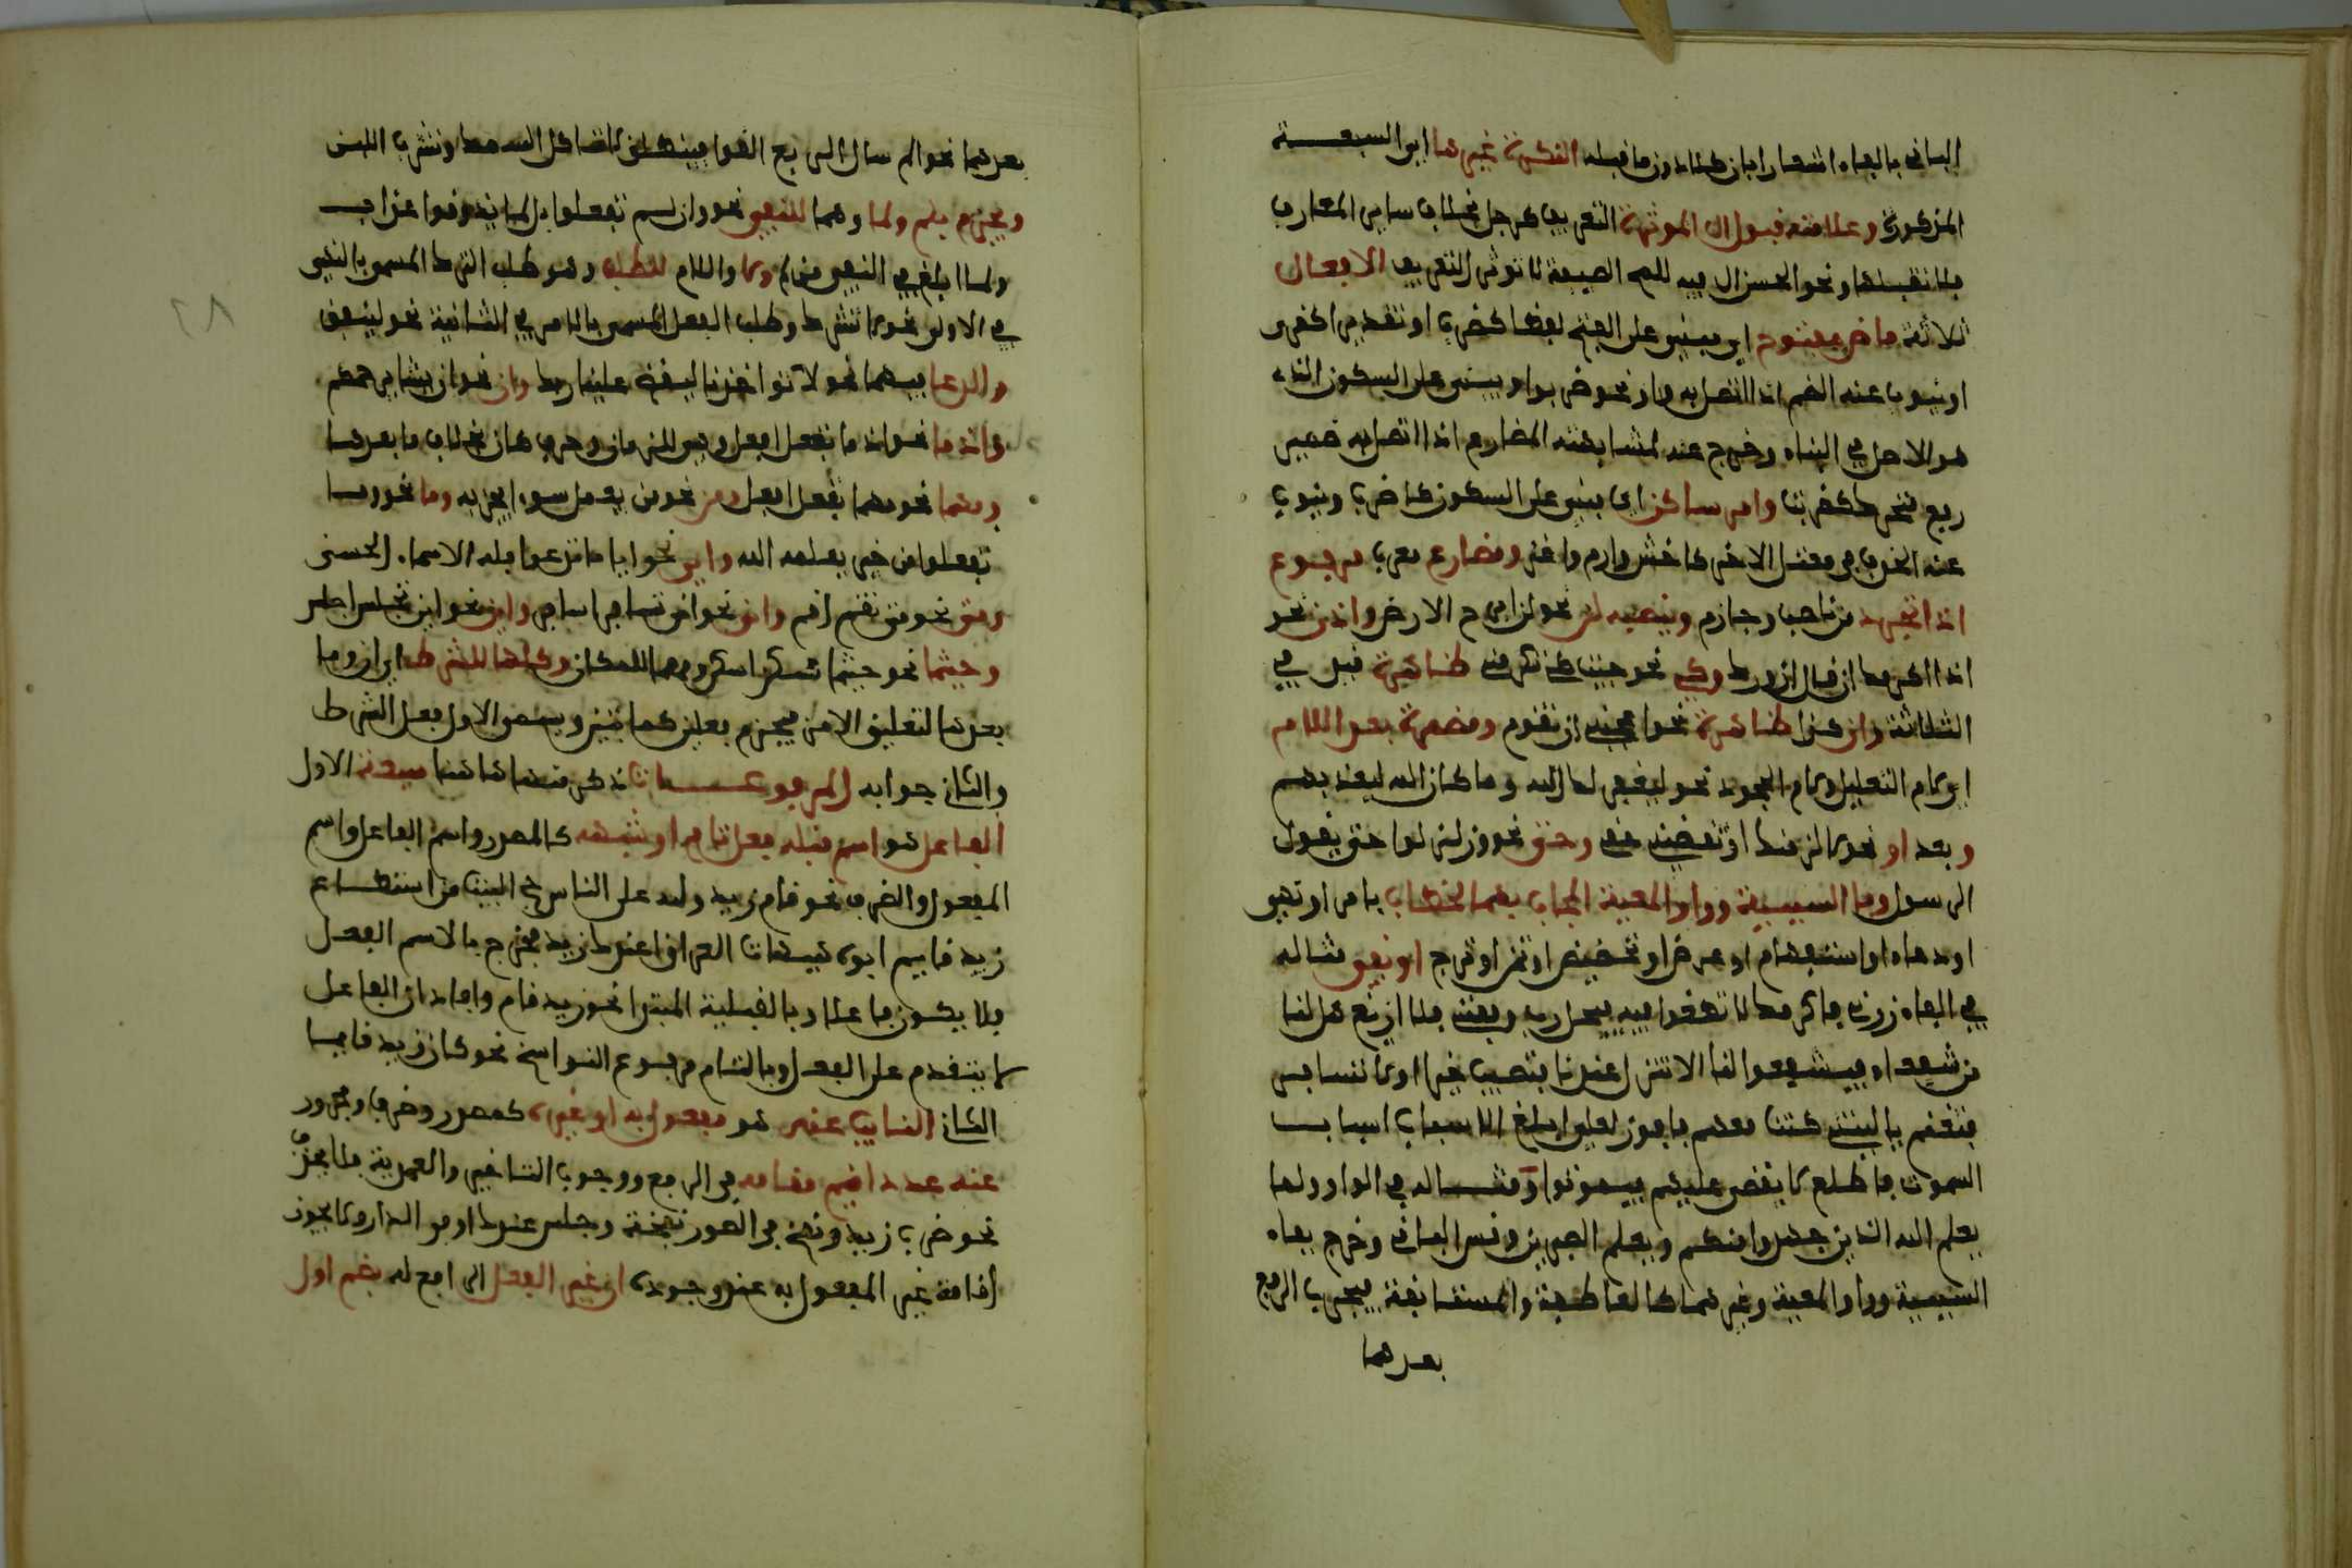 الباقي بالفاء اشعارا بان كلا دون ما قبله النكرة غيرها اي السبعة
المذكورة وعلامته قبول ال الموثرة التعريف كرجل بخلاف ساير المعارف
فلا تقبلها ونحو الحسن ال فيه للمح الصفة لا توثر التعريف الافعال
ثلاثة ماض مفتوح اي مبني على الفتح لفظا كضرب او تقديرا كغزى
او ينوب عنه الضم اذا اتصل به واو نحو ضربوا ويبنى على السكون الذي
هو الاصل في البناء وخرج عنه لمشابهته المضارع اذا اتصل به ضمير
رفع متحرك كضربت وامر ساكن اي يبنى على السكون كاضرب وينوب
عنه الحذف في معتل الاخر كاخش وارم واغز ومضارع معرب مرفوع
اذا تجرد من ناصب وجازم وينصبه لن نحو لن ابرح الارض واذن نحو
اذا اكرمك لمن قال ازورك وكي نحو جيت كي تكرمني ظاهرة قيل في
الثلاثة وان كذا ظاهرة نحو اعجبني ان تقوم ومضمرة بعد اللام
اي لام التعليل ولام الجحود نحو ليغفر لك الله وما كان الله ليعذبهم
وبعد او نحو لالزمنك او تقضيني حقي وحتى نحو وزلزلوا حتى يقول
الرسول وفا السببية وواو المعية المجاب بهما الطلب بامر او نهي
او دعاء او استفهام او عرض او تحضيض او تمن او ترج او نفي مثاله
في الفاء زرني فاكرمك لا تطغوا فيه فيحل رب وفقني فلا ازيغ هل لنا
من شفعاء فيشفعوا لنا الا تنزل عندنا فتصيب خيرا لولا تسابر
فتغنم ياليتني كنت معهم فافوز لعلي ابلغ الاسباب اسباب
السموت فاطلع لا يقضى عليهم فيموتوا ومثاله في الواو ولما
يعلم الله الذين جهدوا منكم ويعلم الصبرين وقس الباقي وخرج بفاء
السببية وواو المعية وغيرهما كالعاطفة والمستانفة فيجب الرفع
بعدهما
بعدهما نحو الم سال الربع القوا فينطق لا تاكل السمك وتشرب اللبن
ويجزم بلم ولما وهما للنفي نحو وان لم تفعلوا بل لما يذوقوا عذاب
ولما ابلغ في النفي من لم ولا واللام للطلب وهو طلب الترك المسمى بالنهي
في الاولى نحو لا تشرك وطلب الفعل المسمى بالامر في الثانية نحو لينفق
والدعا فيهما نحو لا تواخذنا ليقض علينا ربك وان نحو ان يشا يرحمكم
واذما نحو اذ ما تفعل افعل وهي للزمان وحرف كان بخلاف ما بعدها
ومهما نحو مهما تفعل افعل ومن نحو من يعمل سوءا يجز به وما نحو وما
تفعلوا من خير يعلمه الله واي نحو ايا ما تدعوا فله الاسماء الحسنى
ومتى نحو متى تقم اقم وانى نحو انى تسافر اسافر واين نحو اين تجلس اجلس
وحيثما نحو حيثما تسكن اسكن وهما للمكان وكلها للشرط اي ان وما
بعدها لتعليق الامر فيجزم فعلين كما تبين ويسمى الاول فعل الشرط
والثاني جوابه المرفوعات ذكر منها هاهنا سبعة الاول
الفاعل هو اسم قبله فعل تام او شبهه كالمصدر واسم الفاعل واسم
المفعول والظرف نحو قام زيد ولله على الناس حج البيت من استطاع
زيد قايم ابوه هيهات العراق اعندك زيد فخرج بالاسم الفعل
فلا يكون فاعلا وبالقبلية المبتدا نحو زيد قام وافاد ان الفاعل
لا يتقدم على الفعل وبالتام مرفوع النواسخ نحو كان زيد قايما
الثاني النايب عنه هو مفعول به او غيره كمصدر وظرف ومجرور
عنه عدد اقيم مقامه في الرفع ووجوب التاخير والعمدية فلا يحذف
نحو ضرب زيد ونفخ في الصور نفخة وجلس عندك او في الدار ولا يجوز
اقامة غير المفعول به عند وجوده ان غير الفعل الرافع له بضم اول